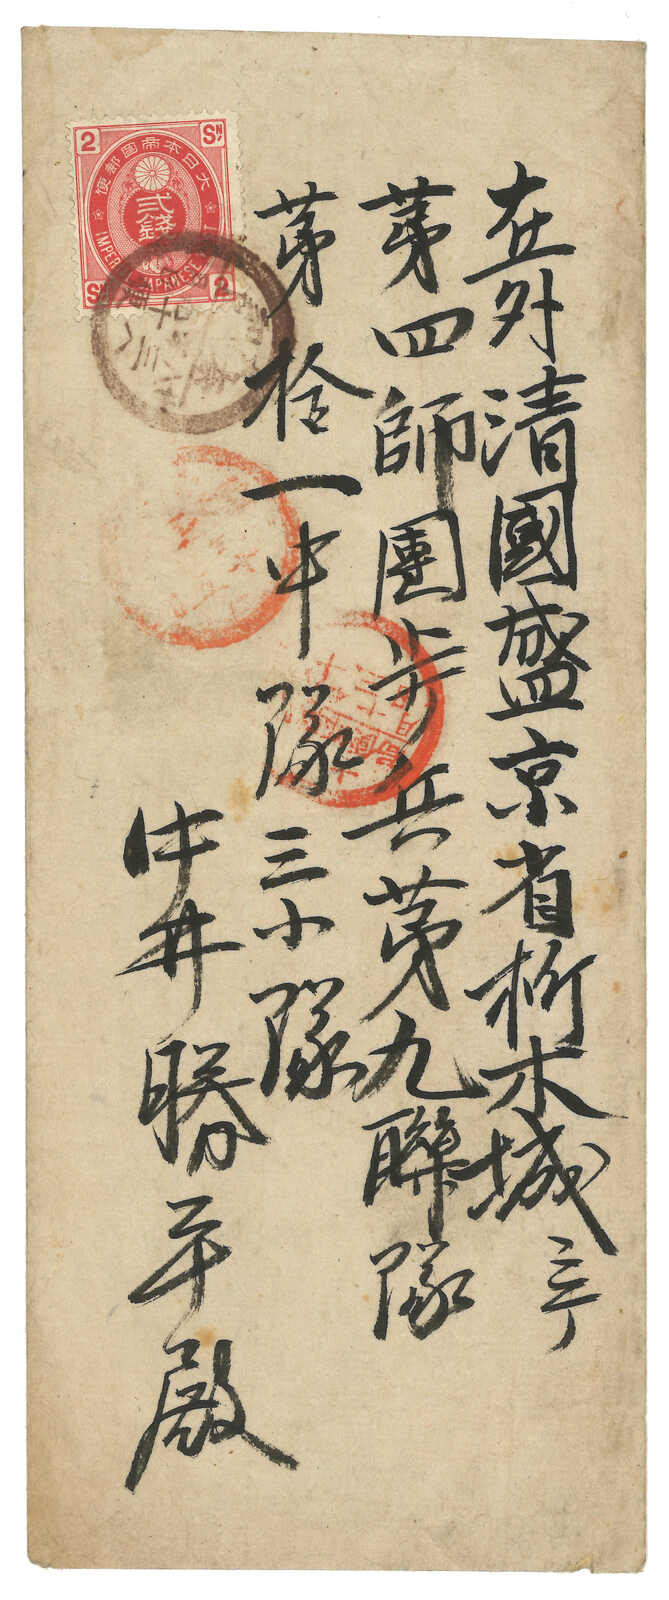 在外清國盛京省析木城ニテ
第四師團歩兵第九聯隊
第拾一中隊三小隊
中井勝平殿
大日本帝國郵便
貳錢
IMPERIAL JAPANESE
2
SN
SN
2